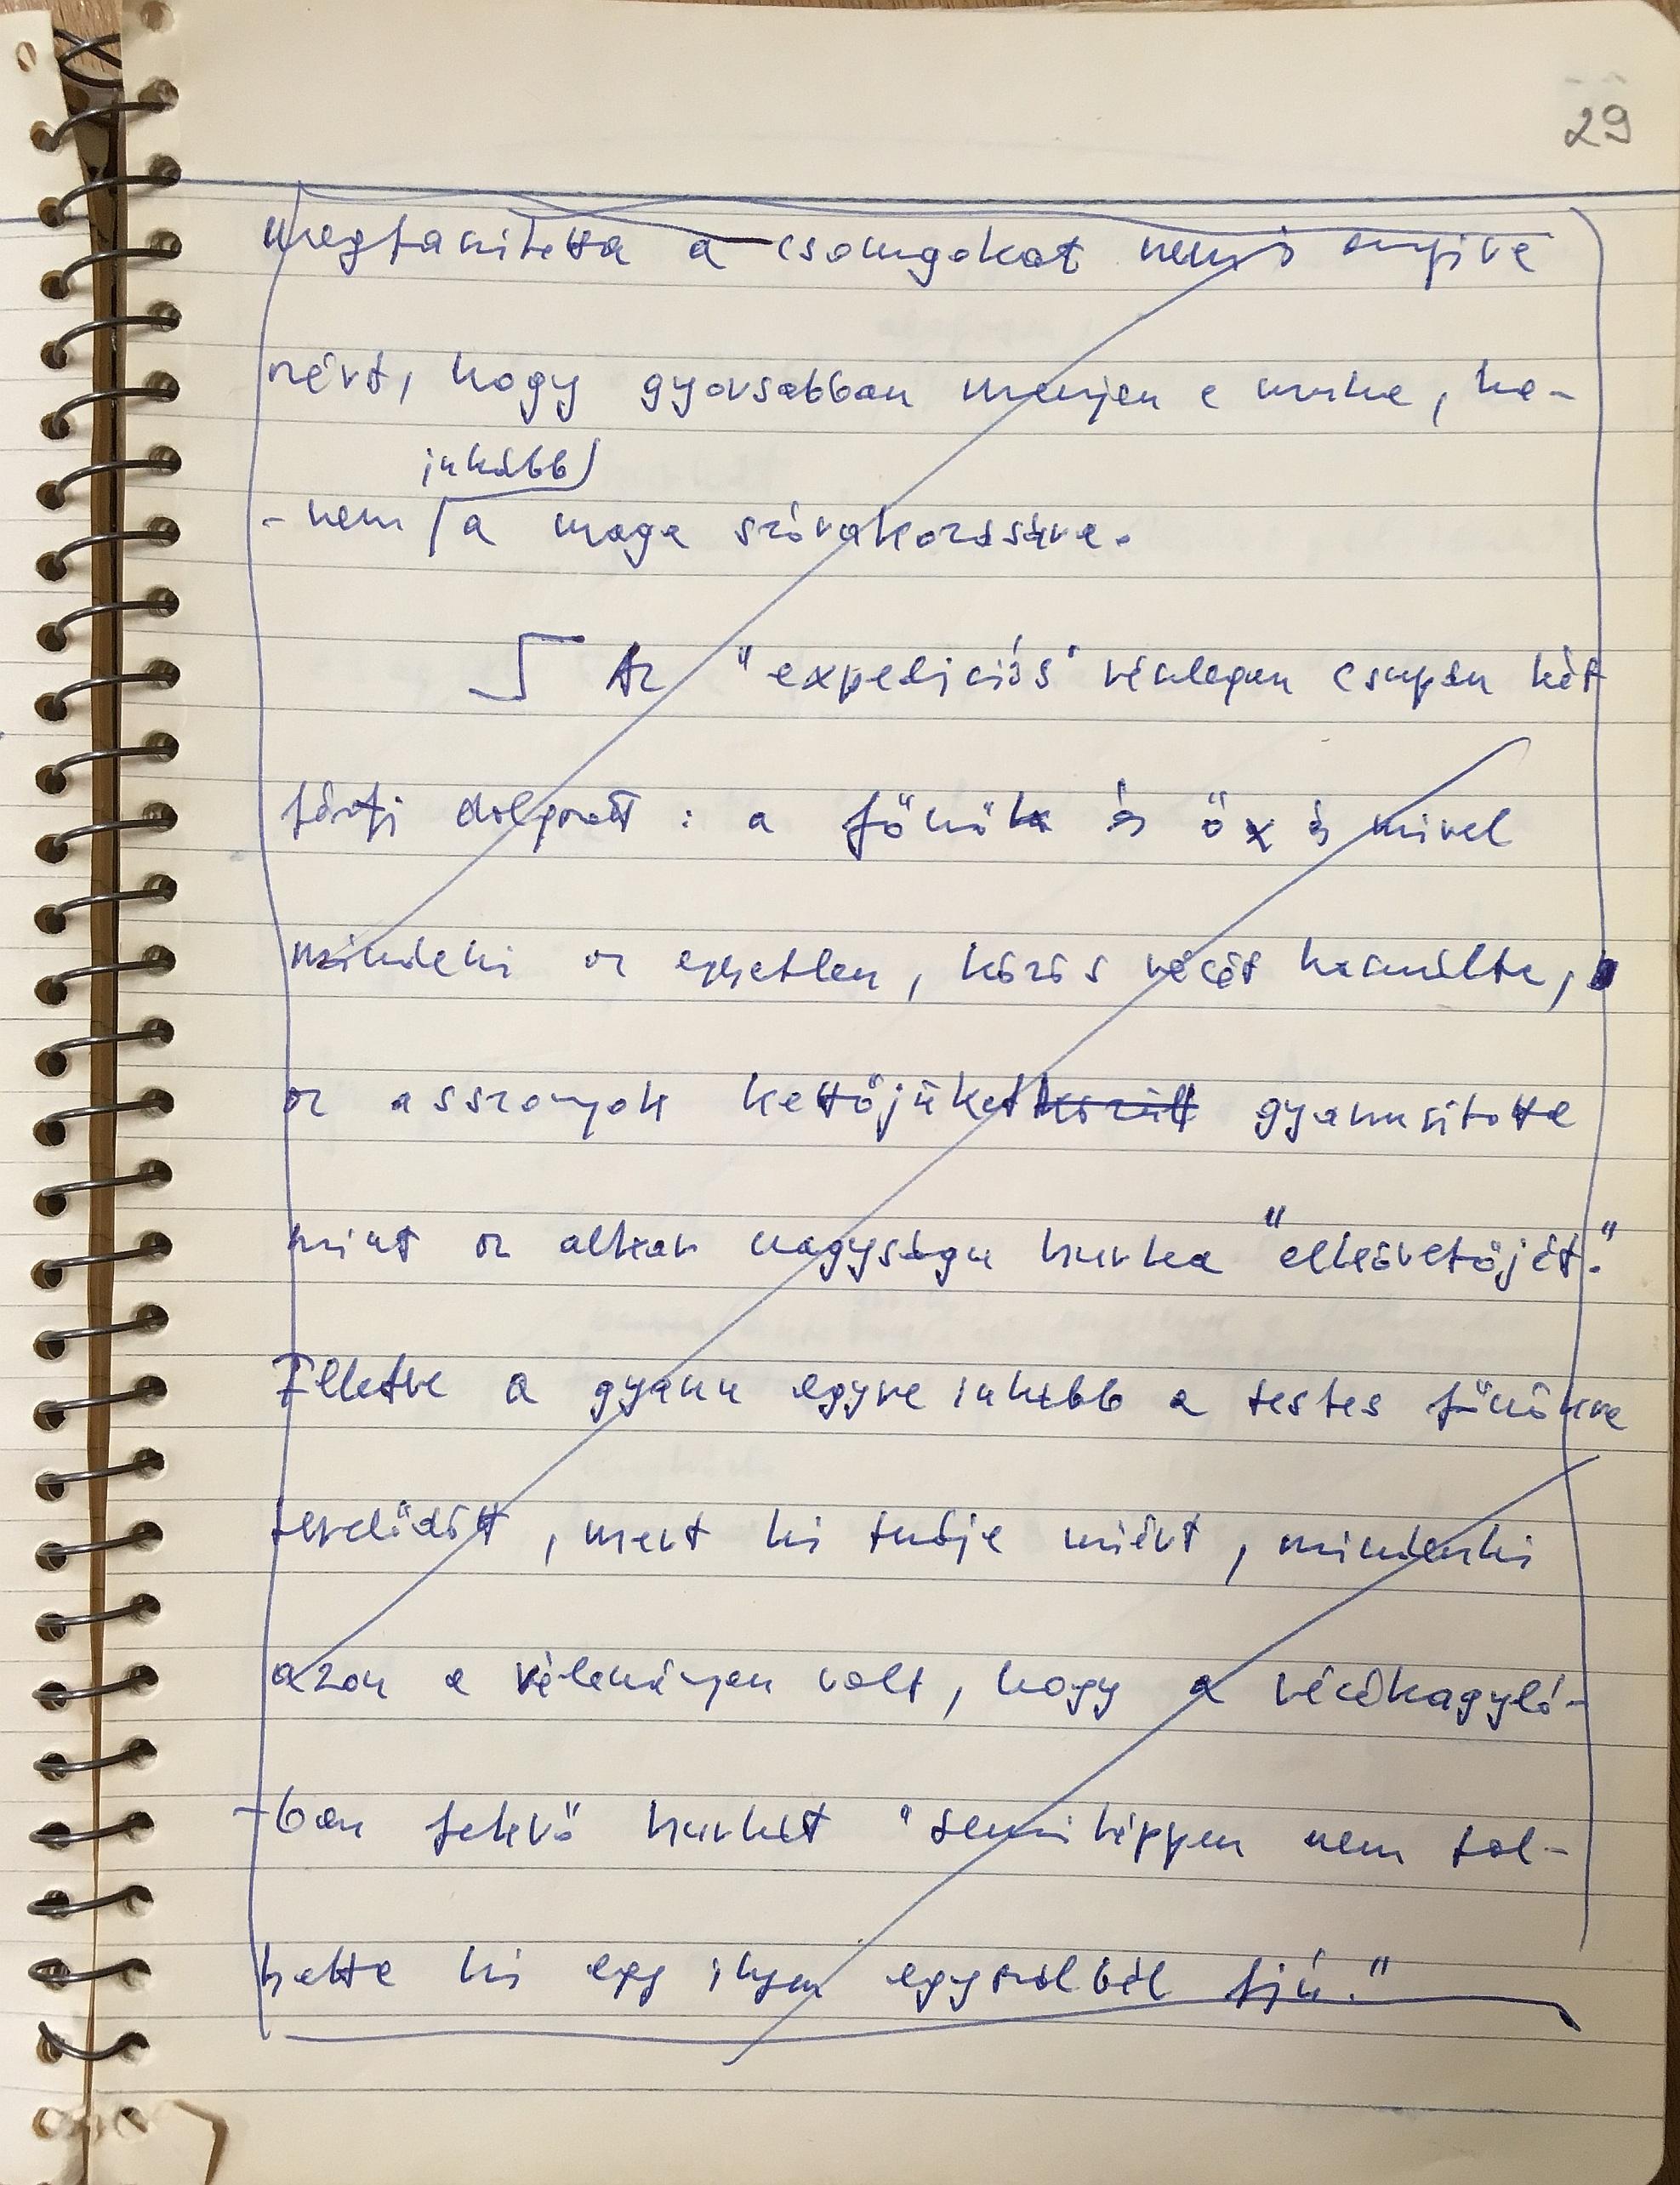 29
megtanitotta a csomagokat nemis annyira
azért, hogy gyorsabban menjen a munka, ha-
inkább
-nem a maga szórakozására.
Az "expediciós" részlegen csupán két
férfi dolgozott: a főnök és ő és mivel
mindenki az egyetlen, közös vécét használta,
az asszonyok kettőjüket körült gyanusitotta
mint az alkar nagyságu hurka "elkövetőjét."
Illetve a gyanu egyre inkább a testes főnökre
terelődött, mert ki tudja miért, mindenki
azon a véleményen volt, hogy a vécékagyló-
-ban fekvő hurkát "semmiképpen nem tol-
hatta ki egy ilyen egyszálbél fjú."